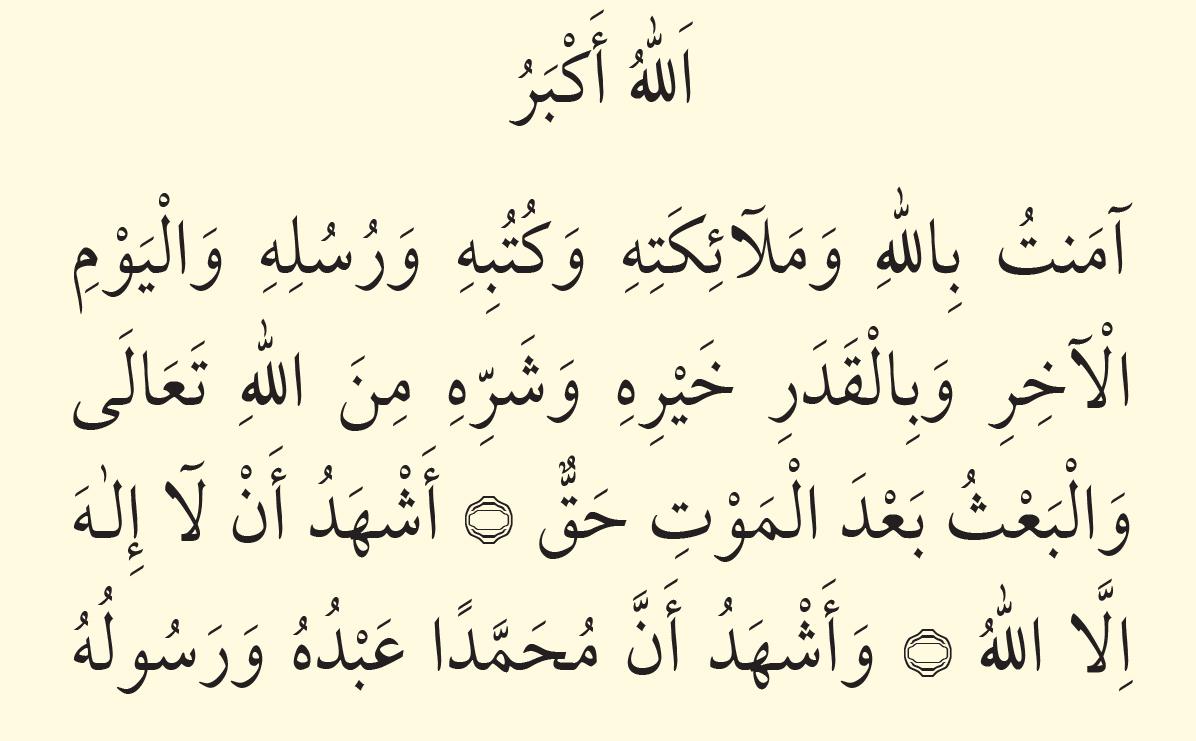 اَللهُ أَكْبَرُ
آمَنتُ بِاللهِ وَمَلآئِكَتِهِ وَكُتُبِهِ وَرُسُلِهِ وَالْيَوْمِ
الْآخِرِ وَبِالْقَدَرِ خَيْرِهِ وَشَرِّهِ مِنَ اللهِ تَعَالَى
وَالْبَعْثُ بَعْدَ الْمَوْتِ حَقٌّ ۝ أَشْهَدُ أَنْ لَآ إِلٰهَ
اِلَّا اللهُ ۝ وَأَشْهَدُ أَنَّ مُحَمَّدًا عَبْدُهُ وَرَسُولُهُ